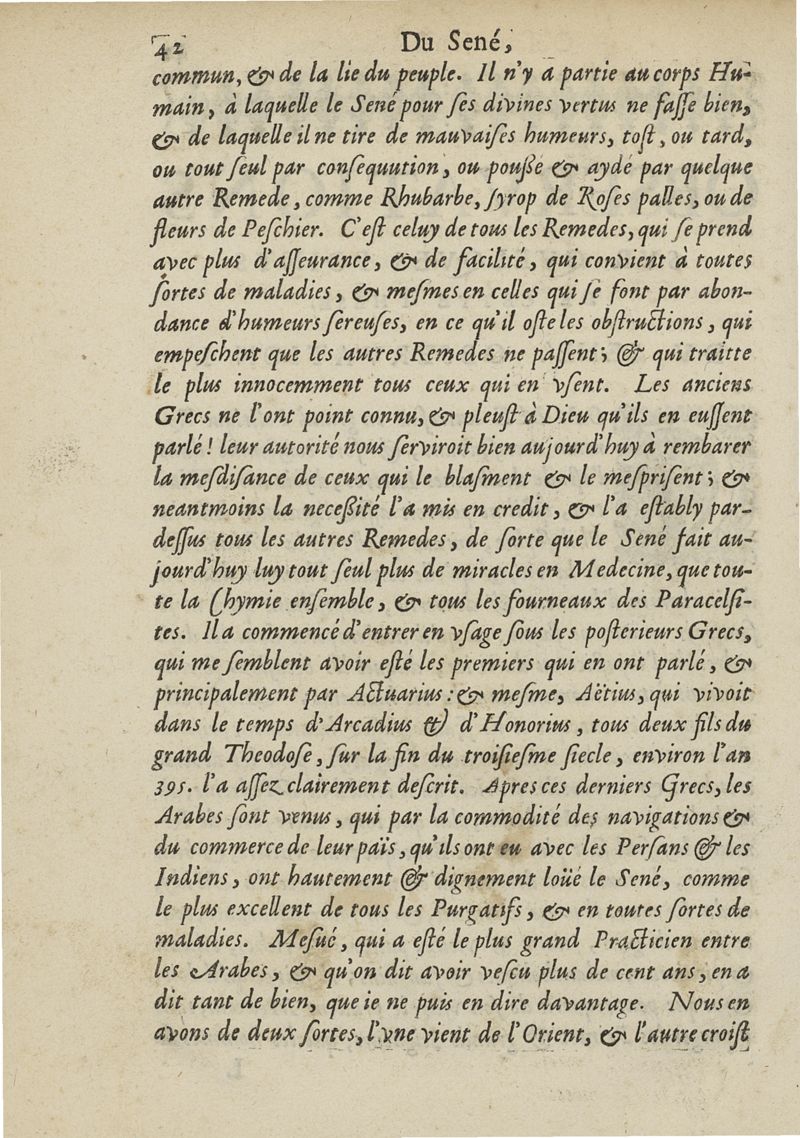 42 Du Sené,
commun, & de la lie du peuple. Il n'y a partie au corps Hu-
main, à laquelle le Sené pour ſes divines vertus ne faſſe bien,
& de laquelle il ne tire de mauvaiſes humeurs, toſt, ou tard,
ou tout ſeul par conſequution, ou poußé & aydé par quelque
autre Remede, comme Rhubarbe, ſyrop de Roſes palles, ou de
fleurs de Peſchier. C'eſt celuy de tous les Remedes, qui ſe prend
avec plus d'aſſeurance, & de facilité, qui convient à toutes
ſortes de maladies, & meſmes en celles qui ſe font par abon-
dance d'humeurs ſereuſes, en ce qu'il oſte les obſtructions, qui
empeſchent que les autres Remedes ne paſſent; & qui traitte
le plus innocemment tous ceux qui en vſent. Les anciens
Grecs ne l'ont point connu, & pleuſt à Dieu qu'ils en euſſent
parlé! leur autorité nous ſerviroit bien aujourd'huy à rembarer
la meſdiſance de ceux qui le blaſment & le meſpriſent; &
neantmoins la neceßité l'a mis en credit, & l'a eſtably par-
deſſus tous les autres Remedes, de ſorte que le Sené fait au-
jourd'huy luy tout ſeul plus de miracles en Medecine, que tou-
te la Chymie enſemble, & tous les fourneaux des Paracelſi-
tes. Il a commencé d'entrer en vſage ſous les poſterieurs Grecs,
qui me ſemblent avoir eſté les premiers qui en ont parlé, &
principalement par Actuarius: & meſme, Aëtius, qui vivoit
dans le temps d'Arcadius & d'Honorius, tous deux fils du
grand Theodoſe, ſur la fin du troiſieſme ſiecle, environ l'an
395. l'a aſſez clairement deſcrit. Apres ces derniers Grecs, les
Arabes ſont venus, qui par la commodité des navigations &
du commerce de leur païs, qu'ils ont eu avec les Perſans & les
Indiens, ont hautement & dignement loüé le Sené, comme
le plus excellent de tous les Purgatifs, & en toutes ſortes de
maladies. Meſué, qui a eſté le plus grand Practicien entre
les Arabes, & qu'on dit avoir veſcu plus de cent ans, en a
dit tant de bien, que ie ne puis en dire davantage. Nous en
avons de deux ſortes, l'vne vient de l'Orient, & l'autre croiſt